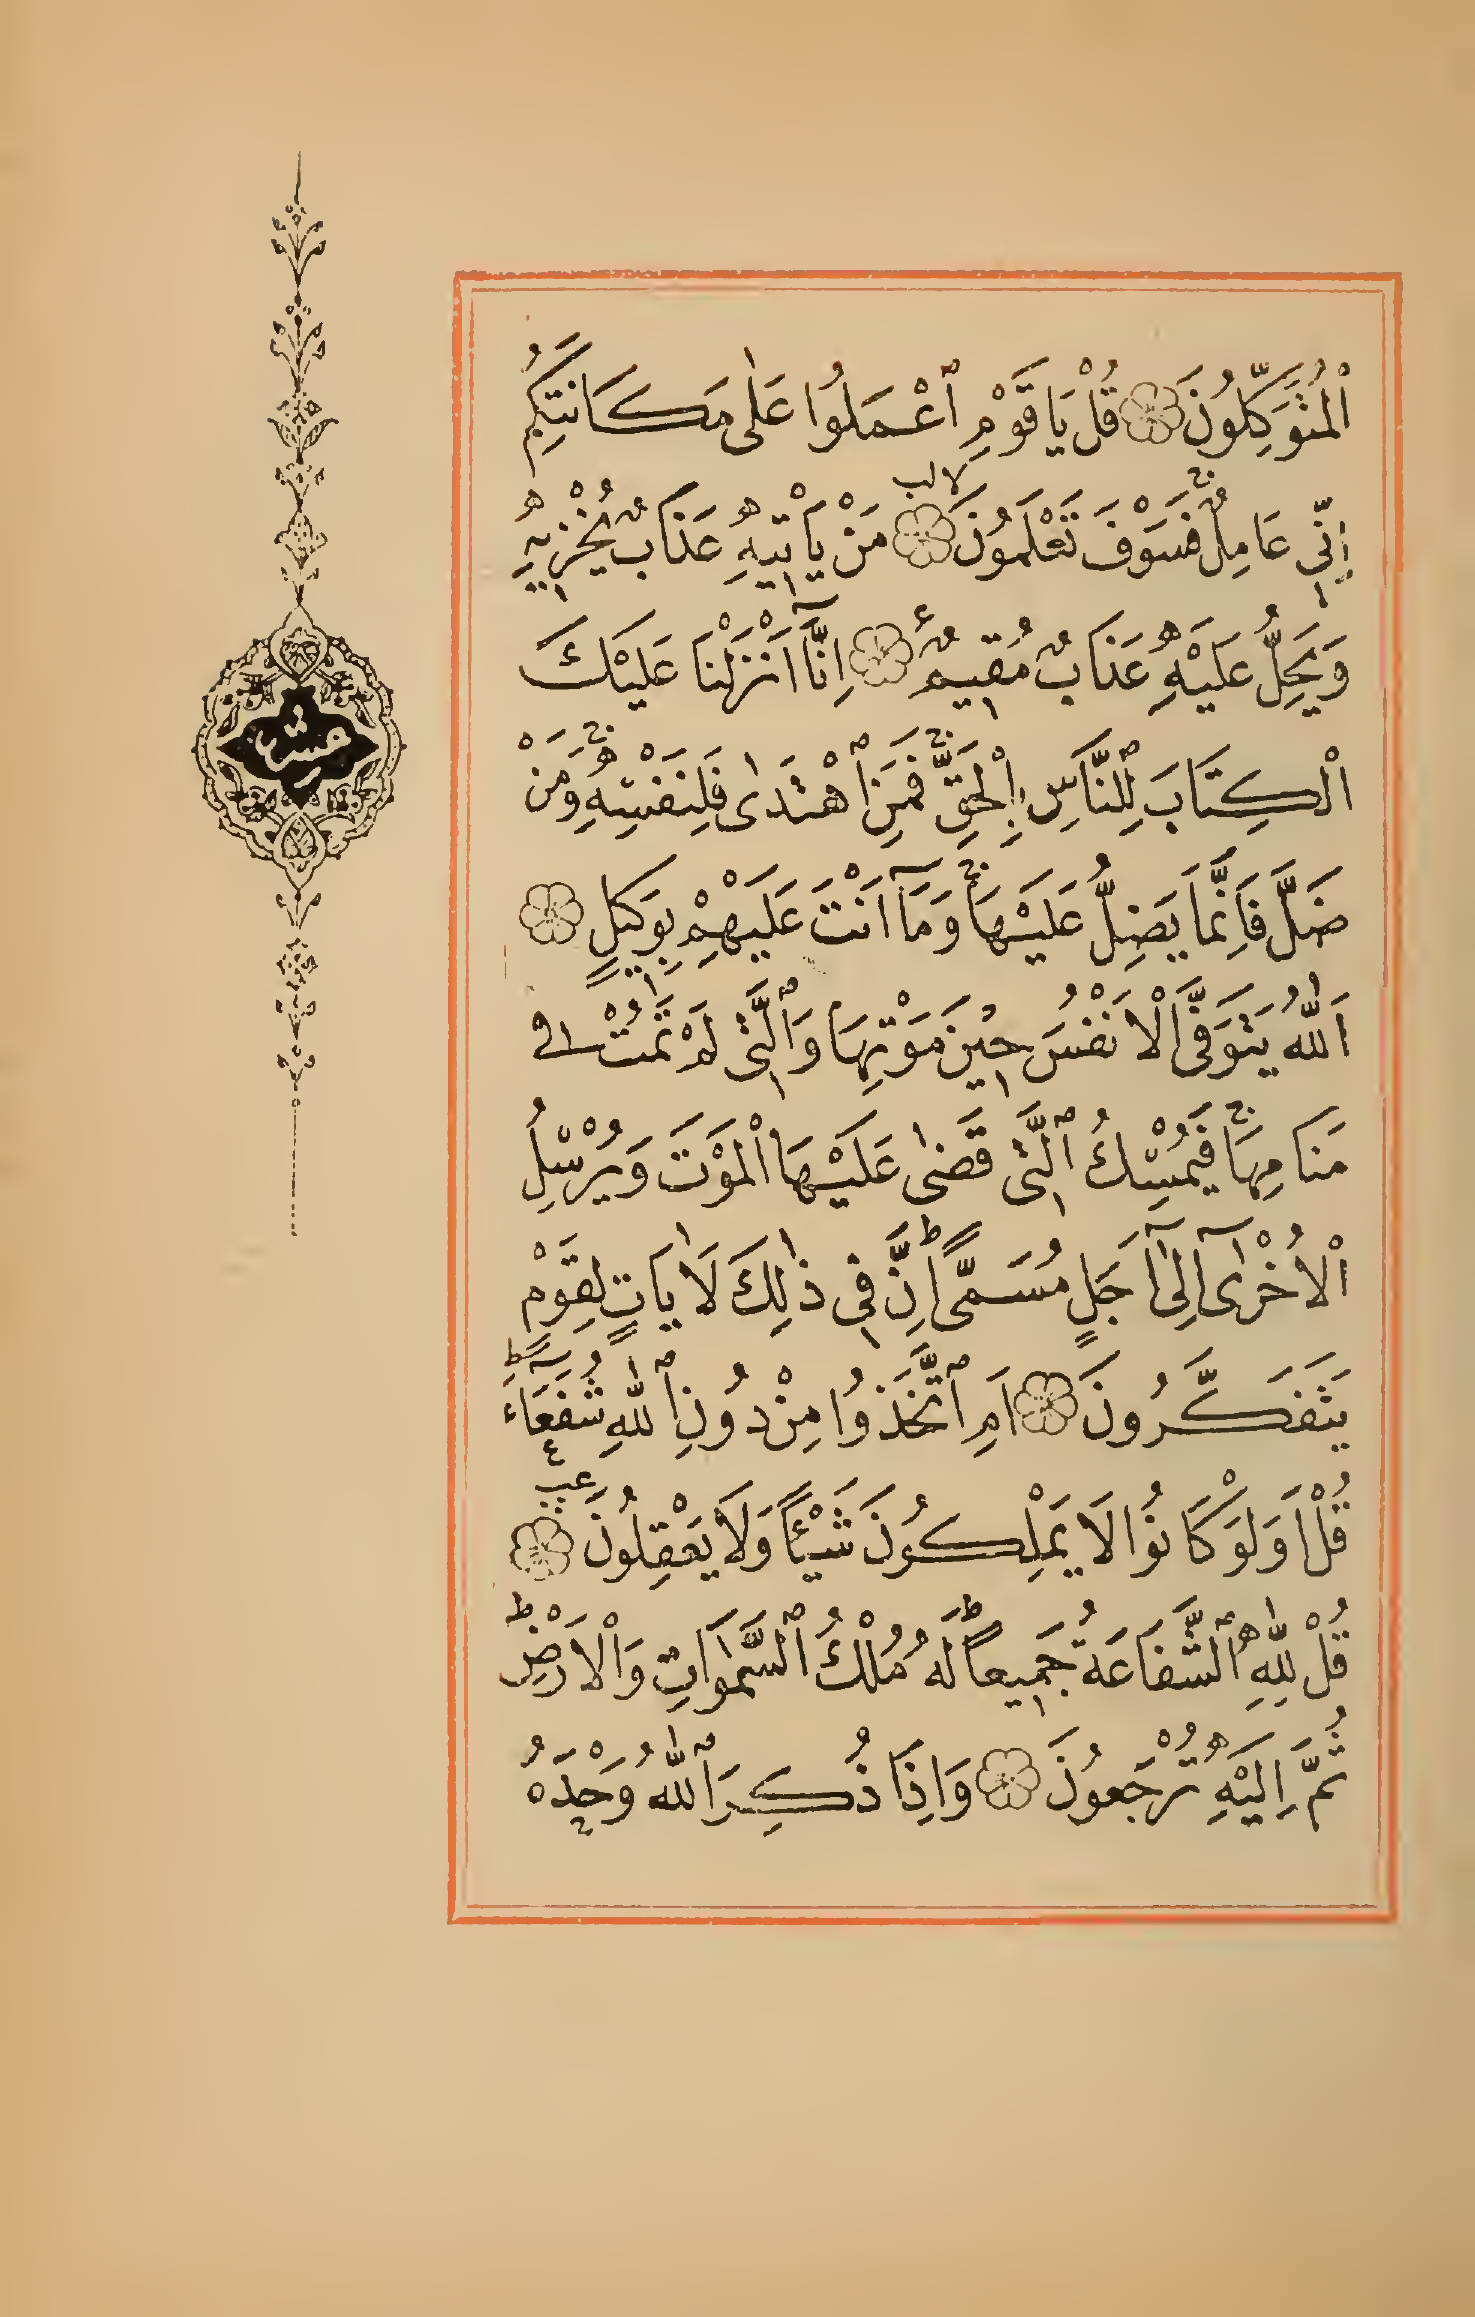 اَلْمُتَوَكِّلُونَ ۝ قُلْ يَا قَوْمِ ٱعْمَلُوا عَلٰى مَكَانَتِكُمْ
اِنّٖي عَامِلٌۚ فَسَوْفَ تَعْلَمُونَ ۝ مَنْ يَأْتٖيهِ عَذَابٌ يُخْزٖيهِ
وَيَحِلُّ عَلَيْهِ عَذَابٌ مُقٖيمٌ ۝ اِنَّٓا اَنْزَلْنَا عَلَيْكَ
الْكِتَابَ لِلنَّاسِ بِالْحَقِّۚ فَمَنِ ٱهْتَدٰى فَلِنَفْسِهِۚ وَمَنْ
ضَلَّ فَاِنَّمَا يَضِلُّ عَلَيْهَاۚ وَمَٓا اَنْتَ عَلَيْهِمْ بِوَكٖيلٍ ۝
اَللّٰهُ يَتَوَفَّى الْاَنْفُسَ حٖينَ مَوْتِهَا وَٱلَّتٖي لَمْ تَمُتْ فٖي
مَنَامِهَاۚ فَيُمْسِكُ ٱلَّتٖي قَضٰى عَلَيْهَا الْمَوْتَ وَيُرْسِلُ
الْاُخْرٰٓى اِلٰٓى اَجَلٍ مُسَمًّىۜ اِنَّ فٖي ذٰلِكَ لَاٰيَاتٍ لِقَوْمٍ
يَتَفَكَّرُونَ ۝ اَمِ ٱتَّخَذُوا مِنْ دُونِ ٱللّٰهِ شُفَعَٓاءَۜ
قُلْ اَوَلَوْ كَانُوا لَا يَمْلِكُونَ شَيْـًٔا وَلَا يَعْقِلُونَ ۝
قُلْ لِلّٰهِ ٱلشَّفَاعَةُ جَمٖيعًاۜ لَهُ مُلْكُ ٱلسَّمٰوَاتِ وَالْاَرْضِۜ
ثُمَّ اِلَيْهِ تُرْجَعُونَ ۝ وَاِذَا ذُكِرَ ٱللّٰهُ وَحْدَهُ